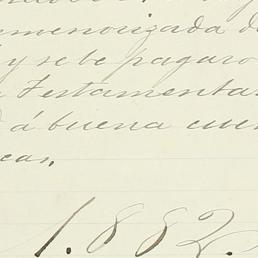 menorizada de
y se be pagaro
Testamenta
á buena cuen
cas,
1.882.